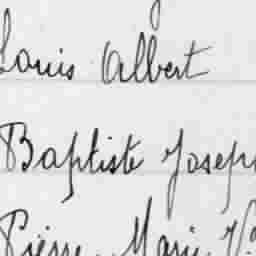 Louis Albert
Baptiste Joseph
Pierre Marie